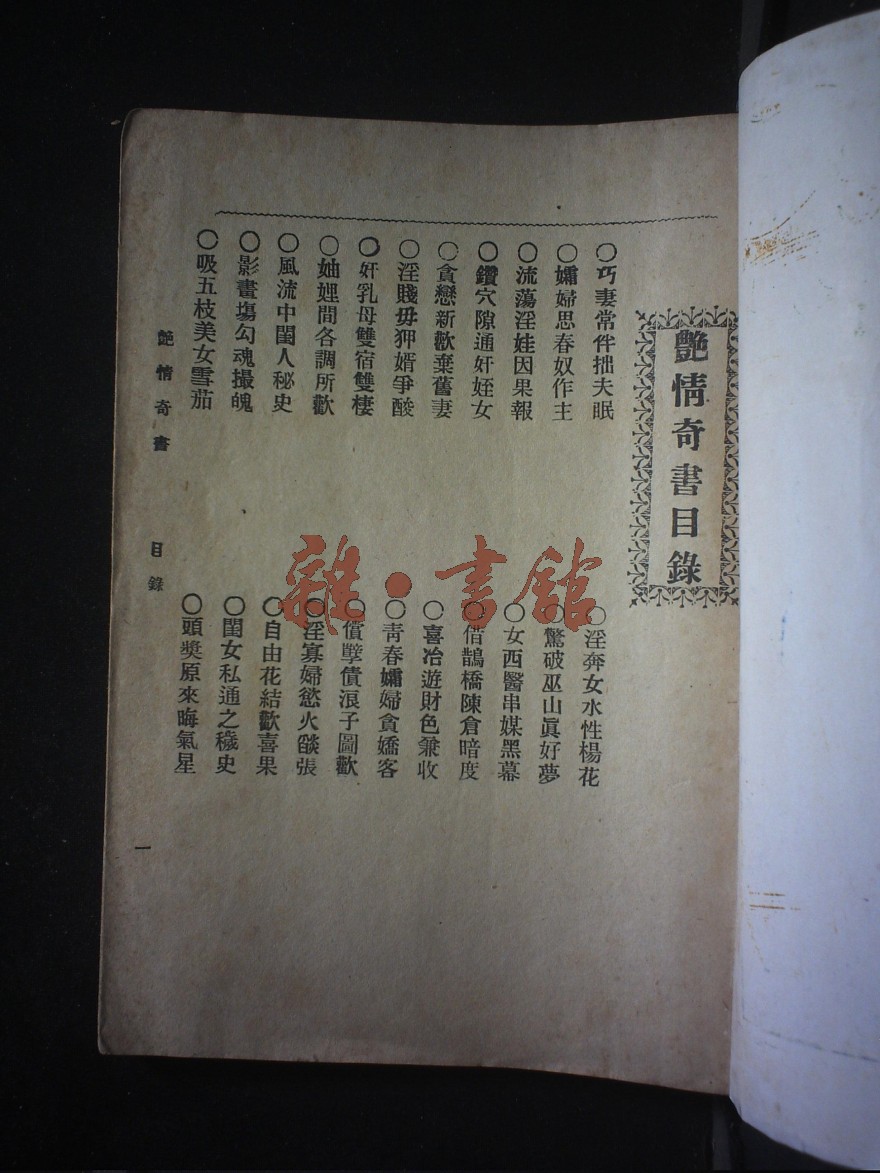 艷情奇書目錄
〇巧妻常伴拙夫眠
〇淫奔女水性楊花
〇孀婦思春奴作主
〇驚破巫山眞好夢
〇流蕩淫娃因果報
〇女西醫串媒黑幕
〇鑽穴隙通奸姪女
〇借鵲橋陳倉暗度
〇貪戀新歡棄舊妻
〇喜冶遊財色兼收
〇淫賤毋狎婿爭酸
〇靑春孀婦貪嬌客
〇奸乳母雙宿雙棲
〇償孽債浪子圖歡
〇妯娌間各調所歡
〇淫寡婦慾火燄張
〇風流中閨人秘史
〇自由花結歡喜果
〇影畫塲勾魂攝魄
〇閨女私通之穢史
〇吸五枝美女雪茄
〇頭獎原來晦氣星
艷情奇書 目錄 一
雜·書館